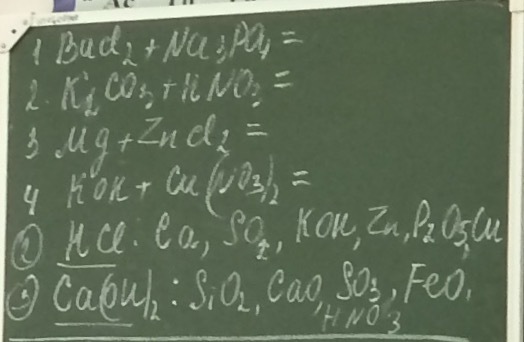 1 BaCl₂ + Na₃PO₄ =
2. K₂CO₃ + HNO₃ =
3 Mg + ZnCl₂ =
4 KOH + Cu(NO₃)₂ =
② HCl: Ca, SO₂, KOH, Zn, P₂O₅, Cu
③ Ca(OH)₂ : SiO₂, CaO, SO₃, FeO,
HNO₃